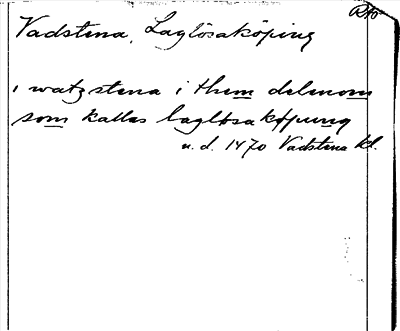 RAp
Vadstena, Laglösaköping
i watzstena i them delenom
som kallas laglösaköpung
u. d. 1470 Vadstena kl.